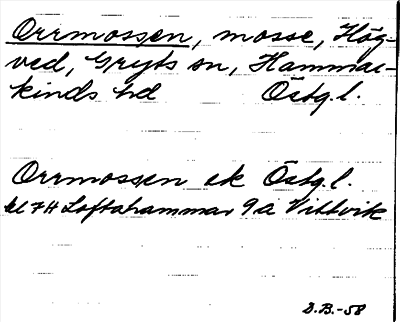 Orrmossen, mosse, Hög-
ved, Gryts sn, Hammar-
kinds hd Östg.l.
Orrmossen ek Östg.l.
bl 7H Loftahammar 9a Vittvik
S.B.-58